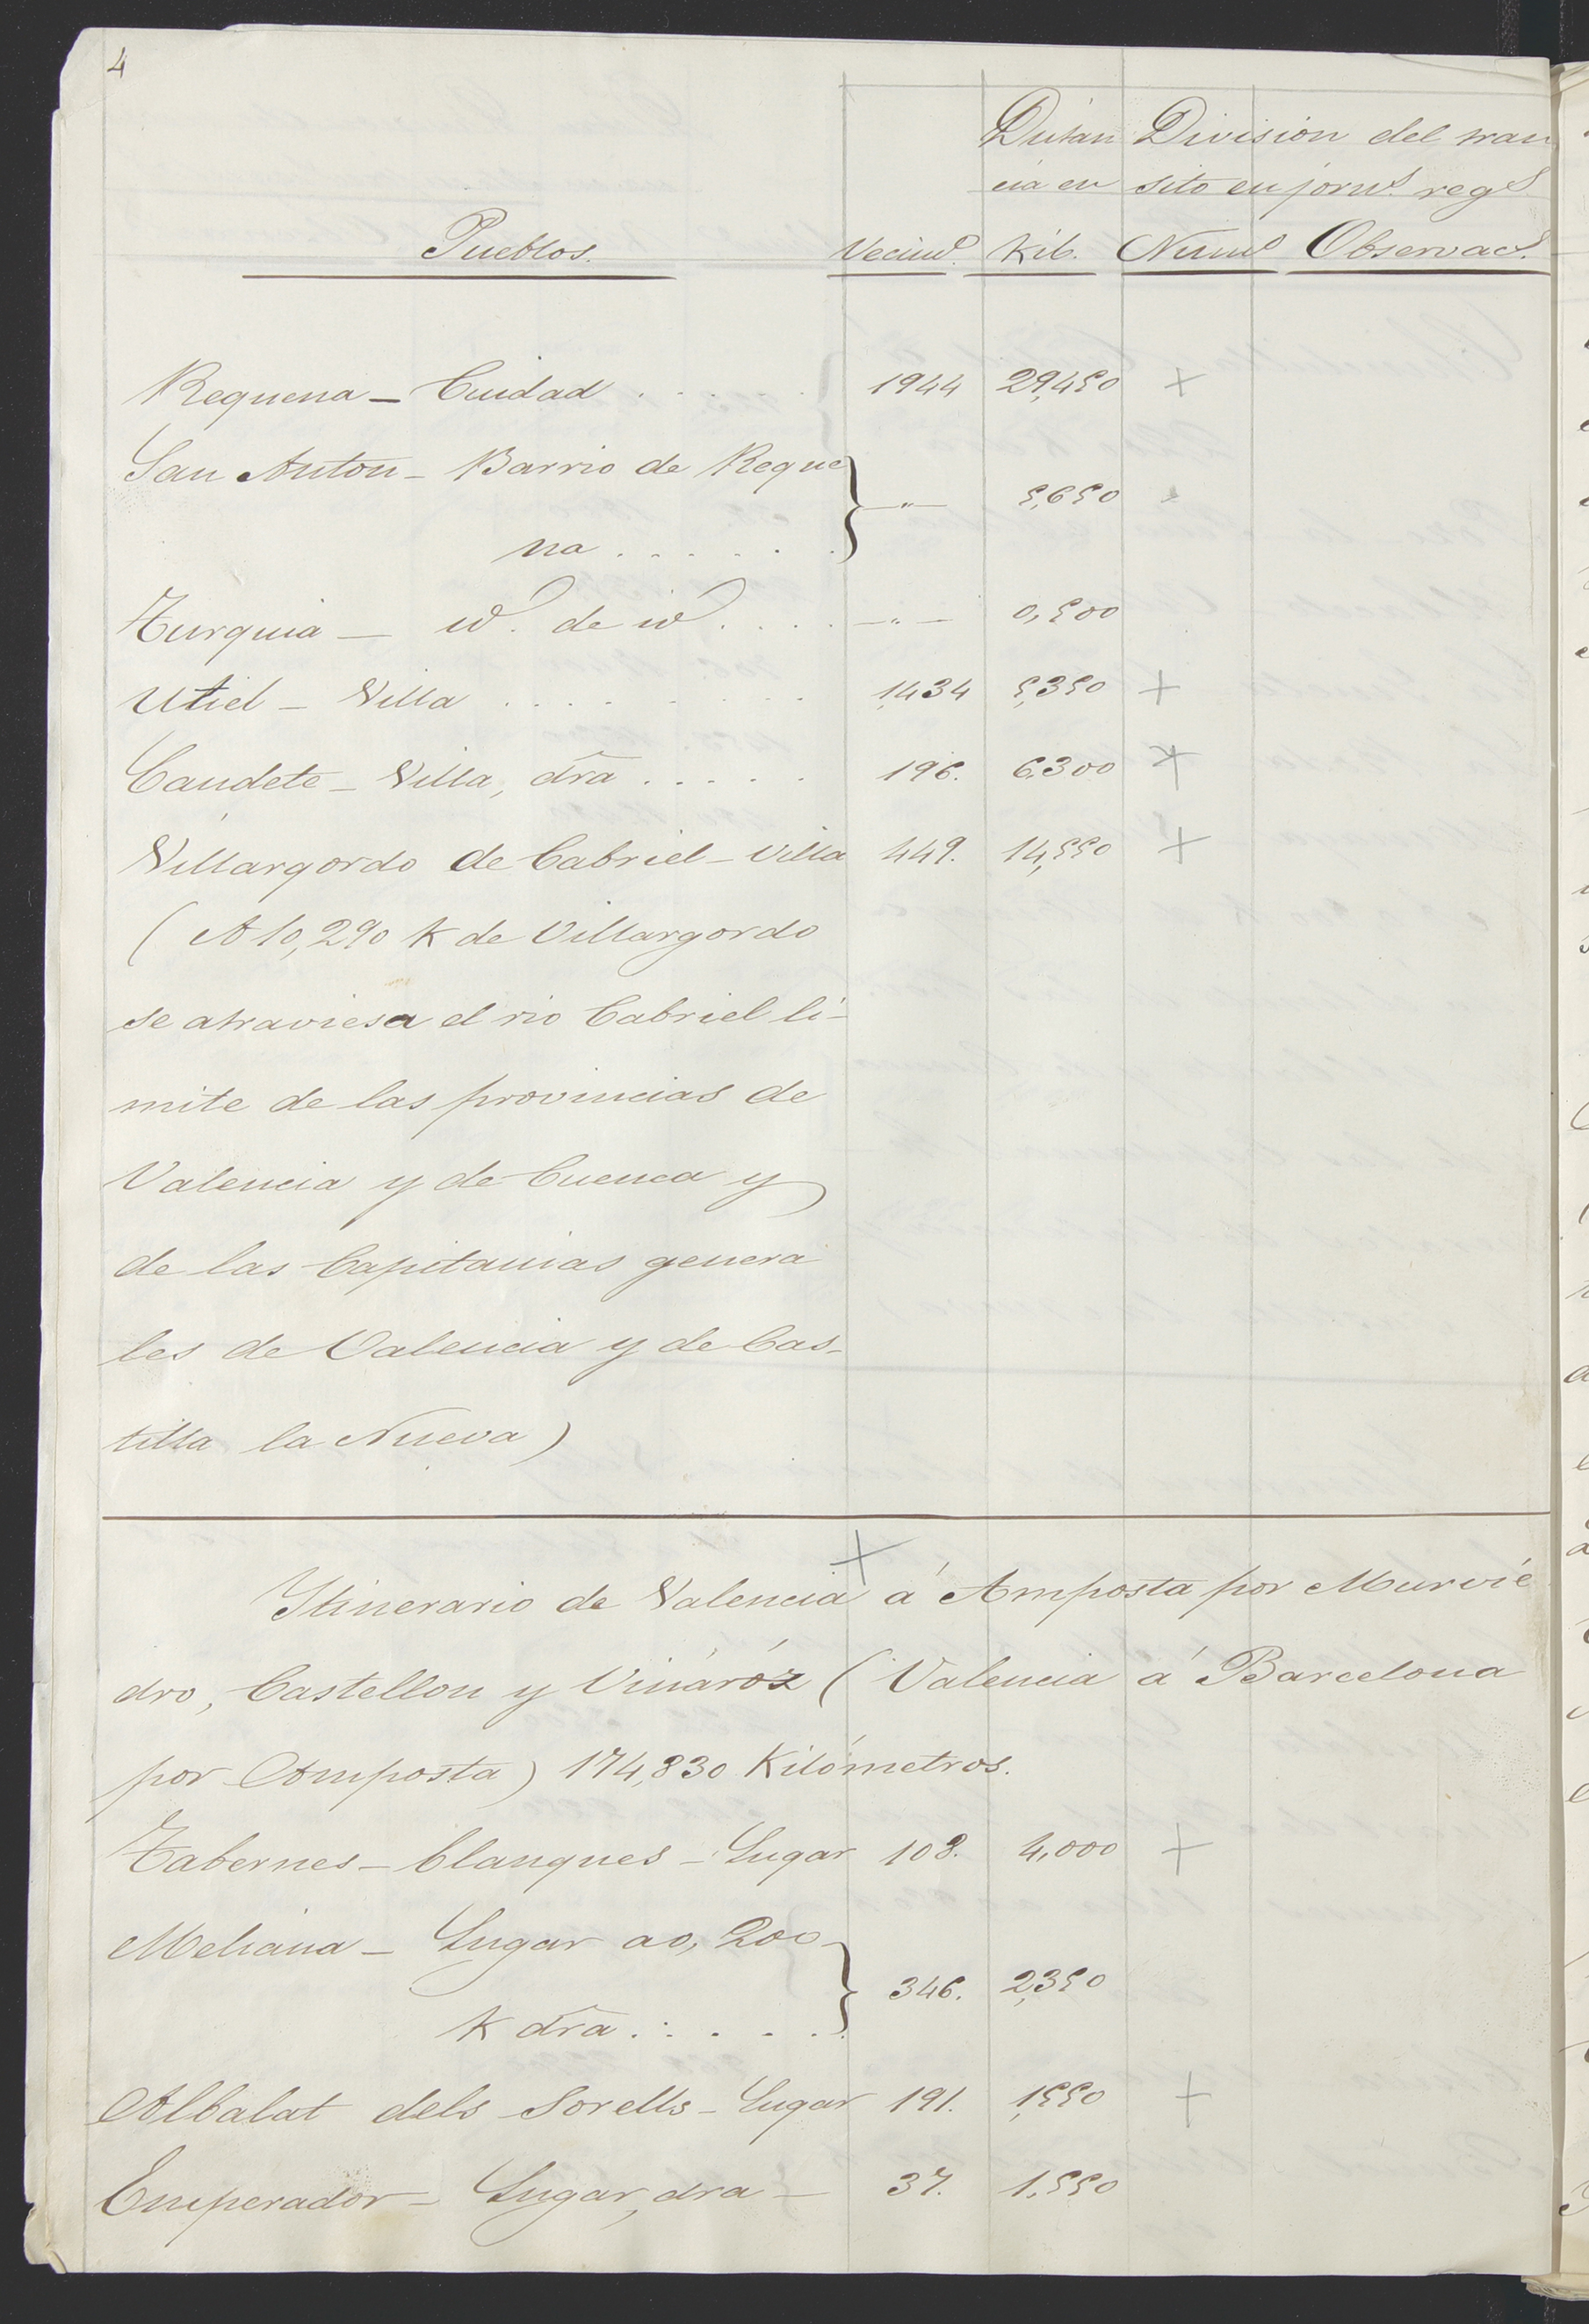 4
Distan División del tran
cia en sito en jorn.s reg.s
Pueblos. Vecind.o Kil. Num.o Observac.s
Requena _ Ciudad . . . . . 1944 29,450 +
San Anton _ Barrio de Reque
na . . . . . . } —"— 5,650
Turquia — id. de id. . . . . —"— 0,500
Utiel _ Villa . . . . . . . . . 1,434 5,350 +
Caudete _ Villa, dra . . . . . 196. 6,300 +
Villargordo de Cabriel _ Villa 449. 14,550 +
( A 10,290 K de Villargordo
se atraviesa el rio Cabriel lí-
mite de las provincias de
Valencia y de Cuenca y
de las Capitanias genera
les de Valencia y de Cas-
tilla la Nueva)
+
Itinerario de Valencia á Amposta por Murvié
dro, Castellon y Vináróz ( Valencia á Barcelona
por Amposta ) 174,830 Kilómetros.
Tabernes _ blanques _ Lugar 108. 4,000 +
Meliana _ Lugar a 0,200
K dra . . . . . . } 346. 2,350
Albalat dels Sorells _ Lugar 191. 1,550 +
Emperador _ Lugar, dra — 37. 1,550